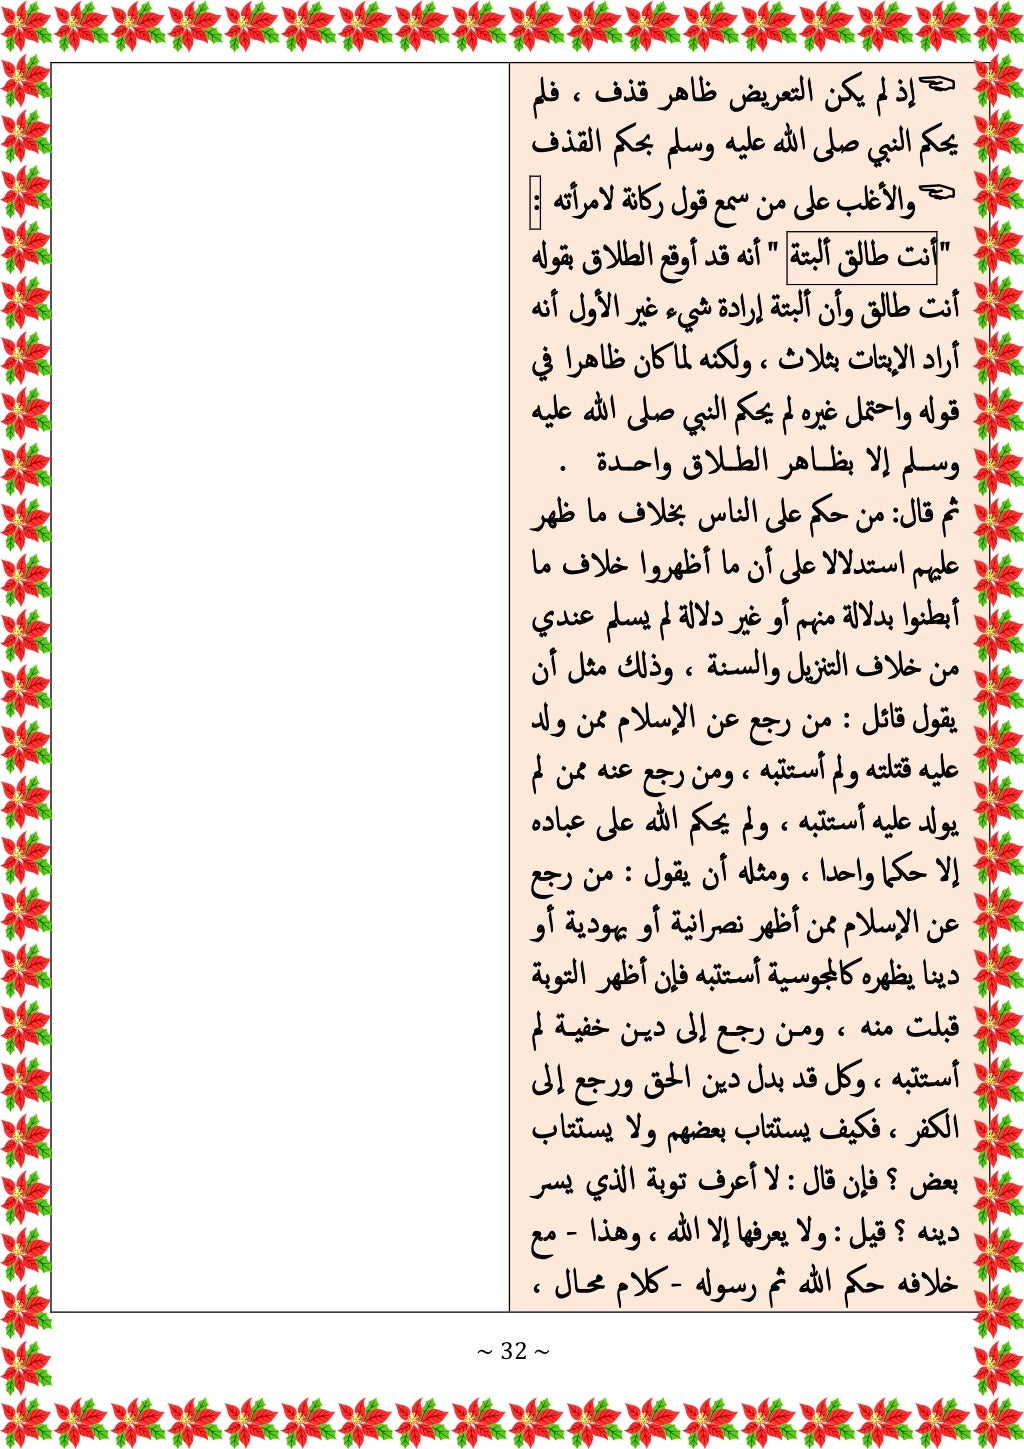 ☜إذ لم يكن التعريض ظاهر قذف ، فلم
يحكم النبي صلى الله عليه وسلم بحكم القذف
☜والأغلب على من سمع قول ركانة لامرأته :
"أنت طالق ألبتة " أنه قد أوقع الطلاق بقوله
أنت طالق وأن ألبتة إرادة شيء غير الأول أنه
أراد الإبتات بثلاث ، ولكنه لما كان ظاهرا في
قوله واحتمل غيره لم يحكم النبي صلى الله عليه
وسلم إلا بظاهر الطلاق واحدة .
ثم قال: من حكم على الناس بخلاف ما ظهر
عليهم استدلالا على أن ما أظهروا خلاف ما
أبطنوا بدلالة منهم أو غير دلالة لم يسلم عندي
من خلاف التنزيل والسنة ، وذلك مثل أن
يقول قائل : من رجع عن الإسلام ممن ولد
عليه قتلته ولم أستتبه ، ومن رجع عنه ممن لم
يولد عليه أستتبه ، ولم يحكم الله على عباده
إلا حكما واحدا ، ومثله أن يقول : من رجع
عن الإسلام ممن أظهر نصرانية أو يهودية أو
دينا يظهره كالمجوسية أستتبه فإن أظهر التوبة
قبلت منه ، ومن رجع إلى دين خفية لم
أستتبه ، وكل قد بدل دين الحق ورجع إلى
الكفر ، فكيف يستتاب بعضهم ولا يستتاب
بعض ؟ فإن قال : لا أعرف توبة الذي يسر
دينه ؟ قيل : ولا يعرفها إلا الله ، وهذا - مع
خلافه حكم الله ثم رسوله - كلام محال ،
~ 32 ~